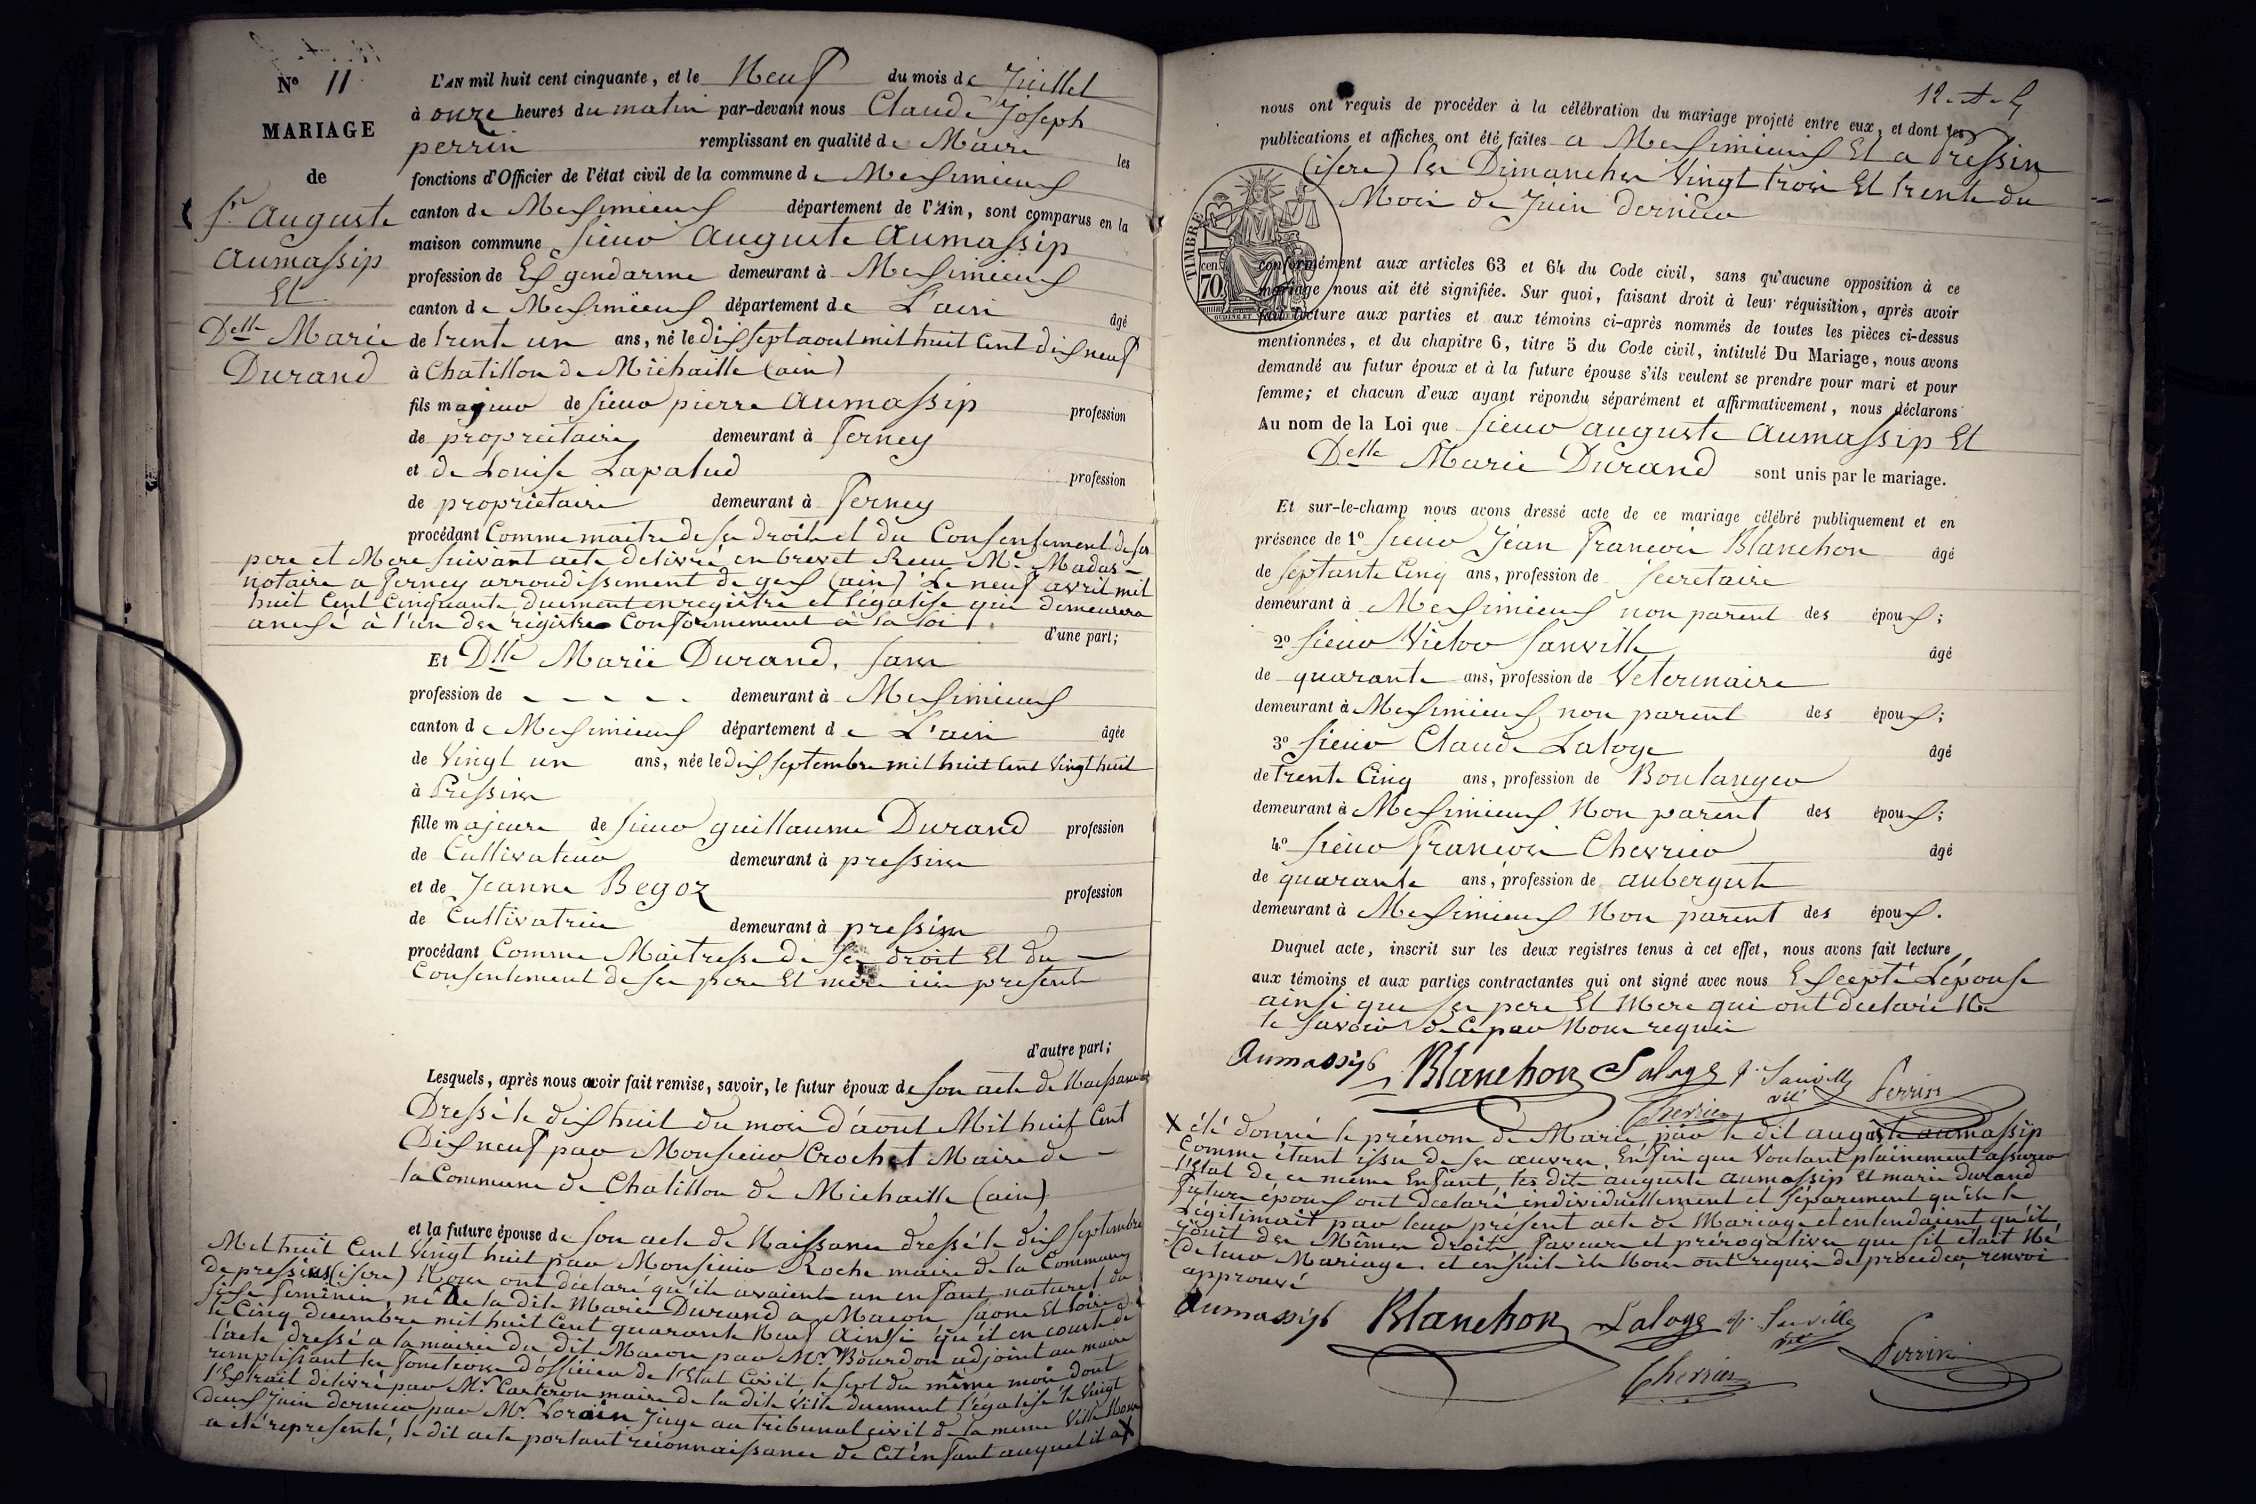 Nº 11
MARIAGE
de
Sr. Auguste
Aumassip
Et
Delle Marie
Durand
L'AN mil huit cent cinquante, et le Neuf du mois de Juillet
à onze heures du matin par-devant nous Claude Joseph
perrin remplissant en qualité de Maire les
fonctions d'Officier de l'état civil de la commune de Meximieux
canton de Meximieux département de l'Ain, sont comparus en la
maison commune Sieur Auguste Aumassip
profession de Ex gendarme demeurant à Meximieux
canton de Meximieux département de L'ain âgé
de trente un ans, né le dix sept aout mil huit Cent dix neuf
à Chatillon de Michaille (ain)
fils majeur de Sieur pierre Aumassip profession
de propriétaire demeurant à Ferney
et de Louise Lapalud profession
de propriétaire demeurant à Ferney
procédant Comme maitre de ses droits et du Consentement de ses
pere et Mere suivant acte delivré en brevet Reçu Me. Madas
notaire a Ferney arrondissement de gex (ain) Le neuf avril mil
huit Cent Cinquante duement enregistré et légalisé qui demeurera
anexé à l'un des régistres Conformement à la loi. d'une part;
Et Dlle Marie Durand, sans
profession de - - - - - demeurant à Meximieux
canton de Meximieux département de L'ain âgée
de Vingt un ans, née le dix septembre mil huit Cent Vingt huit
à Pressins
fille majeure de Sieur guillaume Durand profession
de Cultivateur demeurant à pressins
et de Jeanne Begoz profession
de Cultivatrice demeurant à pressins
procédant Comme Maitresse de ses droits Et du
Consentement de ses pere Et mere ici présents
d'autre part;
Lesquels, après nous avoir fait remise, savoir, le futur époux de son acte de Naissance
Dressé le dix huit du mois d'aout Mil huit Cent
Dix neuf par Monsieur Crochet Maire de
la Commune de Chatillon de Michaille (ain)
et la future épouse de son acte de Naissance dressé le dix septembre
Mil huit Cent Vingt huit par Monsieur Roche maire de la Commune
de pressins (isere) Nous ont déclaré qu'ils avaient un enfant naturel du
sexe feminin, né de la dite Marie Durand a Macon Saone Et Loire
le Cinq decembre mil huit Cent quarante Neuf Ainsi qu'il en couste de
l'acte dressé a la mairie du dit Macon par Mr. Bourdon adjoint au maire
remplissant les fonctions d'officier de l'Etat Civil le sept du même mois dont
l'Extrait delivré par Mr. Carteron maire de la dite Ville duement légalisé le Vingt
deux Juin dernier par Mr. Lorain Juge au tribunal civil de la meme Ville Nous
a été représenté, le dit acte portant réconnaissance de Cet enfant auquel il a X
nous ont requis de procéder à la célébration du mariage projeté entre eux, et dont les
publications et affiches ont été faites a Meximieux Et a Pressin
(isere) les Dimanches Vingt trois Et trente du
Mois de Juin dernier
TIMBRE
70
conformément aux articles 63 et 64 du Code civil, sans qu'aucune opposition à ce
mariage nous ait été signifiée. Sur quoi, faisant droit à leur réquisition, après avoir
fait lecture aux parties et aux témoins ci-après nommés de toutes les pièces ci-dessus
mentionnées, et du chapitre 6, titre 5 du Code civil, intitulé Du Mariage, nous avons
demandé au futur époux et à la future épouse s'ils veulent se prendre pour mari et pour
femme; et chacun d'eux ayant répondu séparément et affirmativement, nous déclarons
Au nom de la Loi que Sieur auguste Aumassip Et
Delle Marie Durand sont unis par le mariage.
Et sur-le-champ nous avons dressé acte de ce mariage célébré publiquement et en
présence de 1º Sieur Jean François Blanchon âgé
de septante Cinq ans, profession de Secretaire
demeurant à Meximieux non parent des époux;
2º Sieur Victor Sanville âgé
de quarante ans, profession de Veterinaire
demeurant à Meximieux non parent des époux;
3º Sieur Claude Laloge âgé
de trente Cinq ans, profession de Boulanger
demeurant à Meximieux Non parent des époux;
4º Sieur François Cherrier âgé
de quarante ans, profession de aubergiste
demeurant à Meximieux Non parent des époux.
Duquel acte, inscrit sur les deux registres tenus à cet effet, nous avons fait lecture
aux témoins et aux parties contractantes qui ont signé avec nous Excepté L'épouse
ainsi que ses pere Et Mere qui ont declaré Ne
le savoir de ce par Nous requis
Aumassip Blanchon Laloge Sanville vét Perrin
Cherrier
X été donné le prénom de Marie, par le dit auguste aumassip
Comme étant issu de ses œuvres. Enfin que Voulant plainement assurer
l'Etat de ce meme Enfant, les dits auguste aumassip Et marie durand
futurs époux ont déclaré individuellement et séparement qu'ils le
Légitimait par leur présent acte de Mariage et entendaient qu'il
jouit des Mêmes droits faveurs et prérogatives que s'il était Né
de leur Mariage. et ensuite ils Nous ont requis de proceder, renvoi
approuvé
Aumassip Blanchon Laloge Sanville vét
Cherrier Perrin